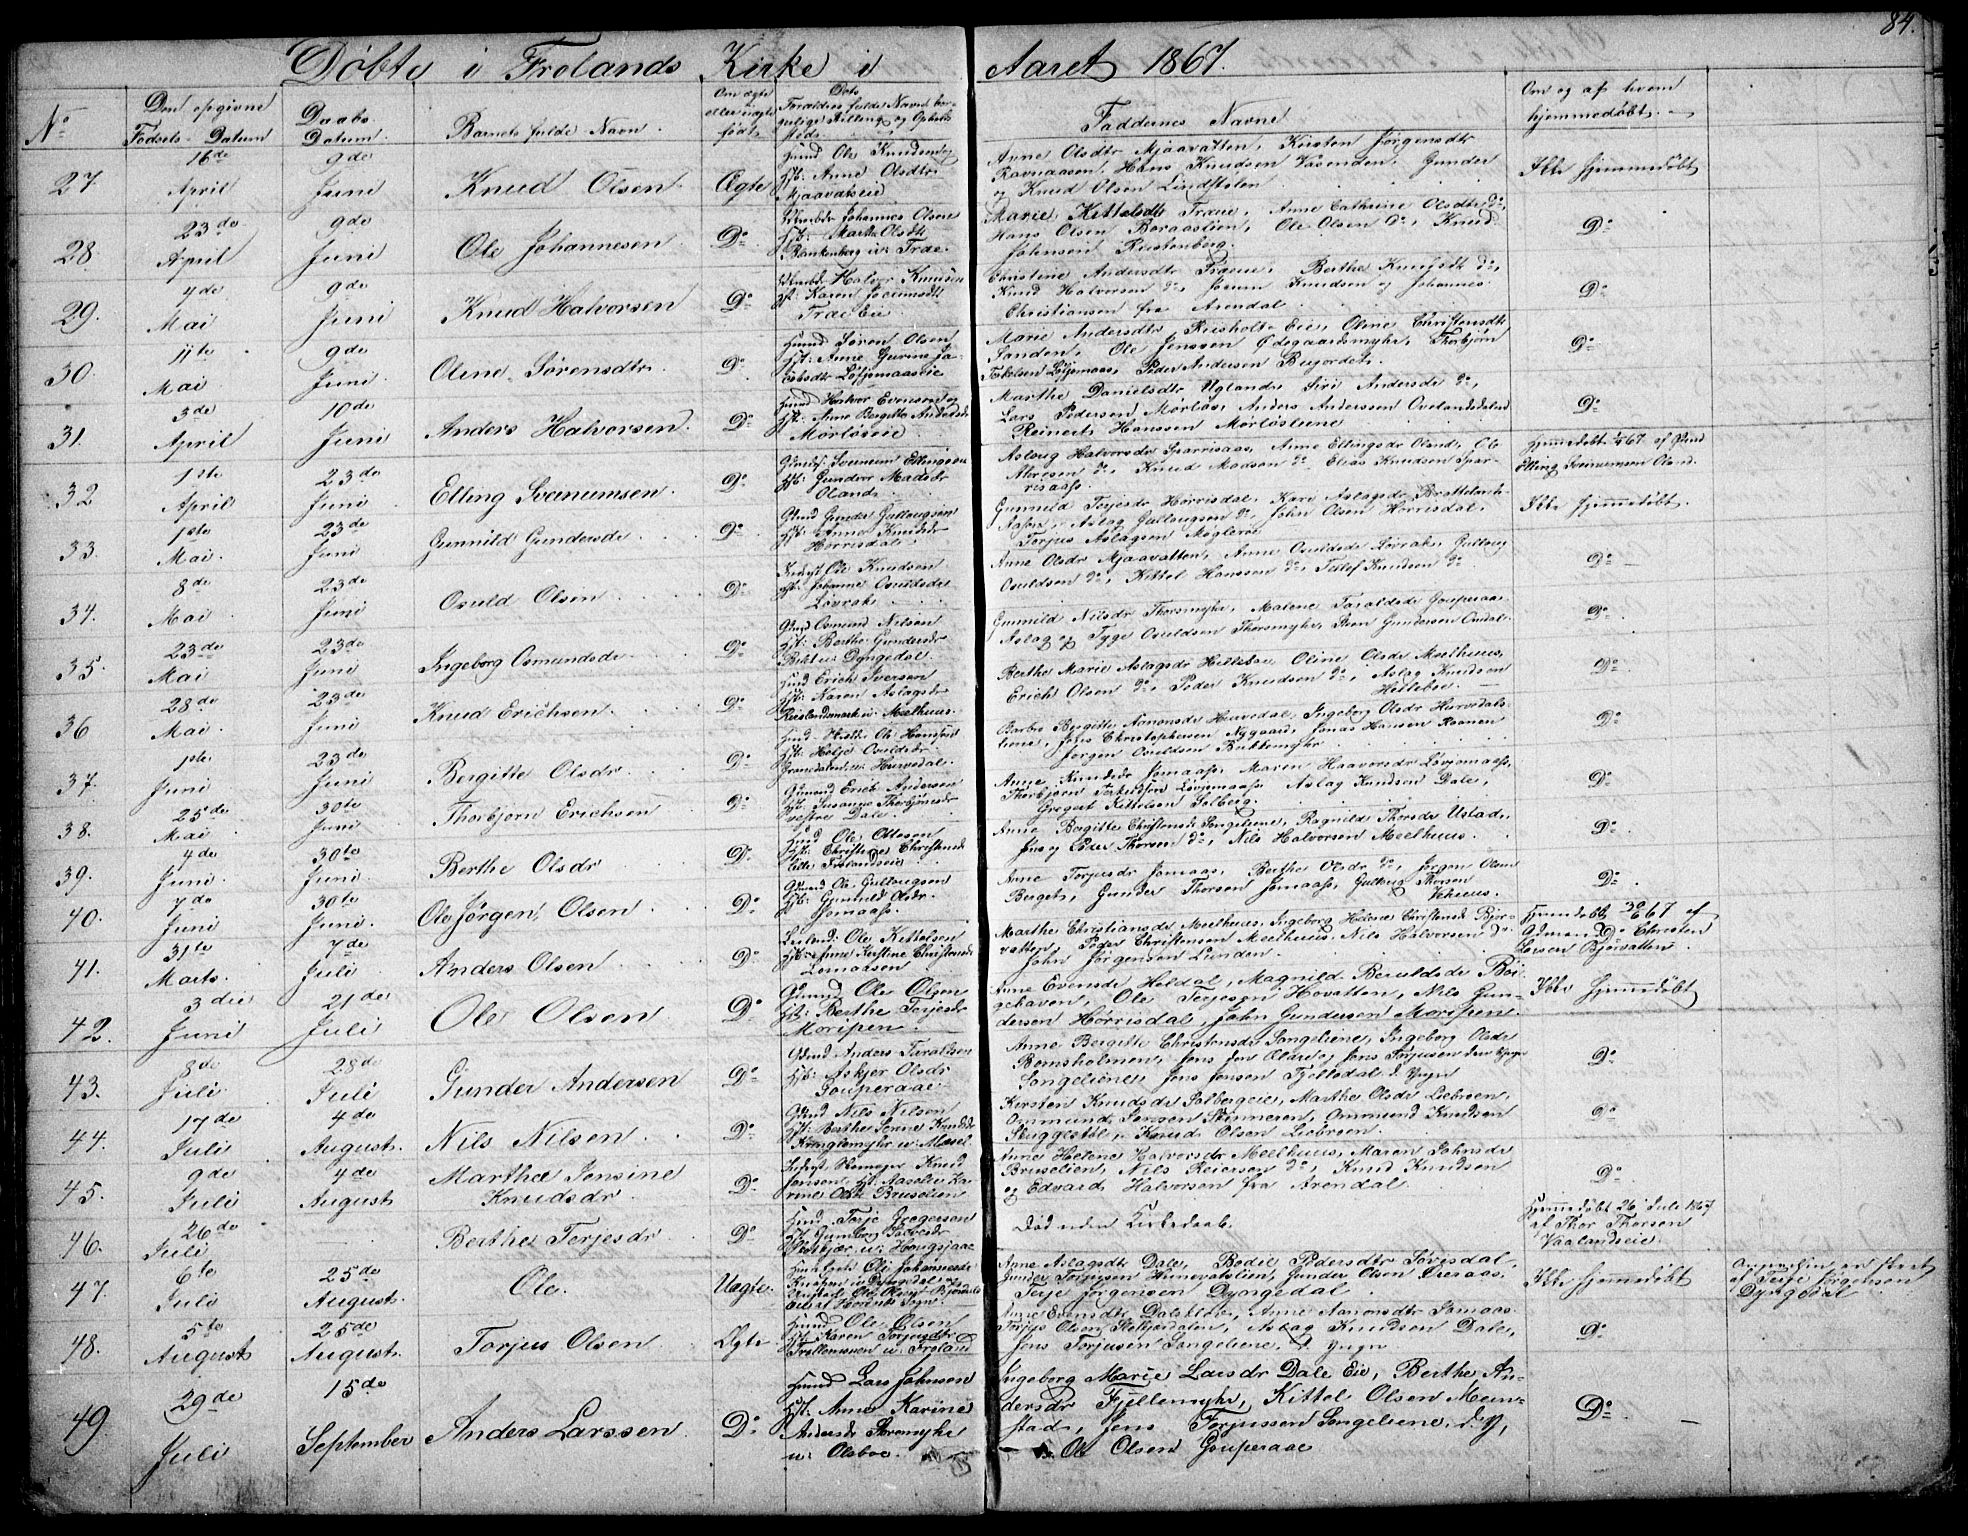 84.
Døbte i Frolands Kirke i Aaret 1867.
No
Den opgivne Fødsels-Datum
Daabs Datum
Barnets fulde Navn
Om ægte eller uægte født
Forældres fulde Navn borgerlige Stilling og Opholdssted
Faddernes Navne
Om og af hvem hjemmedøbt
27. 16de April 9de Juni Knud Olsen Ægte
Hmd Ole Knudsen og
Hst: Anne Olsdtr
Mjaavatseie
Anne Olsdtr Mjaavatten, Kirsten Jørgensdtr
Ravnaasen, Hans Knudsen Vasenden, Gunder
og Knud Olsen Lindstølen
Ikke hjemmedøbt
28. 23de April 9de Juni Ole Johannesen Do
Johannes Olsen
Hst: Marthe Olsdt
Blankenberg u: Trae
Marie Kittelsdtr Traene, Anne Cathrine Olsdtr do,
Hans Olsen Boraaslien, Ole Olsen do, Knud
Johnsen
Do
29. 4de Mai 9de Juni Knud Halvorsen Do
Halvor Knudsen
Hst: Karen Jocumsdt
Trae Eie
Christine Andersdtr Traene, Berthe Knudsdt do,
Knud Halvorsen do, Jocum Knudsen og Johannes
Christiansen fra Arendal
Do
30. 11te Mai 9de Juni Oline Sørensdtr Do
Hmd Søren Olsen
Hst: Anne Gurine Ja-
cobsdtr Løvjomaaseie
Marie Andersdtr Risholt Eie, Oline Christensdtr
Sanden, Ole Jenssen Ødegaardsmyhr, Thorbjørn
Terkelsen Løvjomaas, Peder Andersen Bugordet.
Do
31. 3de April 10de Juni Anders Halvorsen. Do
Hmd Halvor Evensen og
Hst: Anne Bergitte Andersdr
Mørløseie
Marthe Danielsdtr Ugland, Siri Andersdr do,
Lars Pedersen Mørløs, Anders Anderssen Ovelandsdalen
Reinert Hanssen Mørløsliene
Do
32 1ste April 23de Juni Elling Svenumsen. Do
Svenum Ellingsen
Hst: Gundvor Madsdr
Oland
Aslaug Halvorsdr Sparrisaas, Anne Ellingsdr Oland, Ole
Knud Madsen do, Elias Knudsen Spar-
risaas.
hjemmedøbt 67 af
Elling Svenumsen Oland.
33. 1ste Mai. 23de Juni Gunnild Gundersdr Do
Gmd Gunder Gullougsen
Hst: Anne Knudsdr
Hørrisdal
Gunnild Terjesdr Hørrisdal, Kari Aslagsdr
Aslag Gullougsen do, John Olsen Hørrisdal,
Torjus Aslagsen Møglere
Ikke hjemmedøbt.
34. 8de Mai 23de Juni Osuld Olsen Do
Ole Knudsen
Hst: Johanne Osuldsdr
Løvrak
Anne Olsdr Mjaavatten, Anne Osuldsdr Løvrak, Gulloug
Osuldsen do, Kittel Hanssen do, Tellef Knudsen do
Do
35. 23de Mai 23de Juni Ingeborg Osmundsdr Do
Gmd Osmund Nilsen
Hst: Berthe Gundersdr
u: Dyngedal
Gunnild Nilsdr Thorsmyhr, Malene Taraldsdr Gouperaae
Aslag og Tyge Osuldsen Thorsmyhr, Gundersen
Do
36 28de Mai 23de Juni Knud Erichsen. Do
Hmd Erich Iversen
Hst: Karen Aslagsdr
Reislandsmark u: Meelhuus.
Berthe Marie Aslagsdr Helleboe, Oline Olsdr Meelhuus,
Erich Olsen do, Peder Knudsen do, Aslag Knudsen
Helleboe.
Do
37. 1ste Juni 23de Juni Bergitte Olsdr. Do
Hmd Ole Hanssen
Hst: Helje Osuldsdr
Grunedalen u: Hurvedal.
Barbro Bergitte Aanonsdr Hurvedal, Ingeborg Olsdr Hurvedals-
liene, Jens Christophersen Nygaard, Jonas Hansen Raanen
Jørgen Osuldsen Bukkemyhr
Do
38. 25de Mai 30te Juni Thorbjørn Erichsen Do
Gmd Erich Andersen
Hst: Susanne Thorbjørnsdr
vestre Dale
Anne Knudsdr Jomaas, Maren Haavorsdr Løvjomaas,
Thorbjørn Terkelsen Løvjomaas, Aslag Knudsen Dale,
Gregert Kittelsen Solberg
Do
39. 4de Juni 30te Juni Berthe Olsdr Do
Hmd Ole Ottesen
Hst: Christine Christensdr
Frolandseie
Anne Bergitte Christensdr Songeliene, Ragnild Thorsdr Ustad,
Jens og Peder Thorsen do, Nils Halvorsen Meelhuus.
Do
40. 7de Juni 30te Juni Ole Jørgen Olsen Do
Gmd Ole Gullougsen
Hst: Gunnild Olsdr.
Jomaas.
Anne Torjusdr Jomaas, Berthe Olsdr do, Jørgen Olsen
Berget, Gunder Thorsen Jomaas, Gulloug Thorsen
Vehuus.
Do
41. 31te Marts. 7de Juli Anders Olsen Do
Ole Kittelsen
Hst: Anne Kirstine Christensdr
Lomaasen
Marthe Christiansdr Meelhuus, Ingeborg Helene Christensdr Bjor-
vatten, Peder Christensen Meelhuus, Nils Halvorsen do
John Jørgensen Lunden
Hjemmedøbt 30/6 67 af
Gdmand Christen
Larsen Bjorvatten.
42. 3die Juni 21de Juli Ole Olsen Do
Gmd Ole Olsen
Hst: Berthe Terjesdr
Moripen
Anne Evensdr Heldal, Magnild Berulsdr Bøi-
gehaven, Ole Terjesen Hovatten, Nils Gun-
dersen Hørrisdal, John Gundersen Moripen
Ikke hjemmedøbt
43. 8de Juli 28de Juli Gunder Andersen Do
Gmd Anders Taraldsen
Hst: Askjer Olsdr
Gouperaae
Anne Bergitte Christensdr Songeliene, Ingeborg Olsdr
Bomsholmen, Jens den Ældre og Jens Torjusen den Yngre
Songeliene, Jens Jensen Fjelledal d. Yngre
Do
44. 17de Juli 4de August. Nils Nilsen. Do
Gmd Nils Nilsen
Hst: Berthe Tonne Knudsdr
Kringlemyhr u: Messel
Kirsten Knudsdr Solbergeie, Marthe Olsdr Liebroen,
Ommund Jensen Stinneren, Ommund Knudsen
Skuggestøl, Knud Olsen Liebroen.
Do
45. 9de Juli 4de August Marthe Jensine Knudsdr. Do
Knud
Jonsen, Hst: Aasele Ka-
rine Olsdtr Bruselien
Anne Helene Halvorsdr Meelhuus, Maren Johnsdr
Bruselien, Nils Reiersen do, Knud Knudsen
og Edvard Halvorsen fra Arendal.
Do
46. 26de Juli Berthe Terjesdr Do
Hmd. Terje Gregersen
Gunborg
u: Hougsjaae
Død uden Kirkedaab.
Hjemmedøbt 26 Juli 1867
af Thor Thorsen
Vaalandseie
47. 6te Juli 25de August. Ole. Uægte.
Ole Johannessen
u: Dyngedal og
Høvigs Sogn.
Anne Aslagsdtr Dale, Bodil Pedersdtr Sørisdal,
Gunder Torjusen Hunevatslien, Gunder Olsen Dresaas,
Terje Jørgensen Dyngedal
Ikke hjemmedøbt
af Terje Jørgensen
Dyngedal
48. 5te August 25de August. Torjus Olsen Ægte
Hmd Ole Olsen
Hst: Karen Torjusdtr
u: Froland
Anne Evensdtr Dalsliene, Anne Aanonsdtr Jomaas
Torjus Olsen, Aslag Knudsen Dale,
Jens Torjusen Songeliene, d. Yngre
Do
49 29de Juli 15de September Anders Larssen. Do
Hmd Lars Johnsen
Hst: Anne Karine
Andersdr Storemyhr
u: Olsboe.
Ingeborg Marie Larsdr Dale Eie, Berthe An-
dersdr Fjellemyhr, Kittel Olsen Mun-
stad, Jens Torjussen Songeliene, d. Y,
Ole Olsen Gouperaae
Do